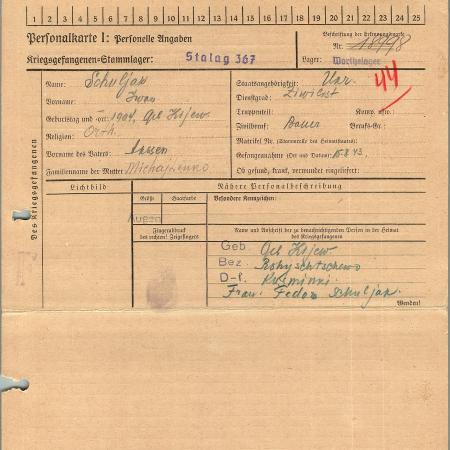 1 2 3 4 5 6 7 8 9 10 11 12 13 14 15 16 17 18 19 20 21 22 23 24 25
Personalkarte I: Personelle Angaben
Kriegsgefangenen-Stammlager: Stalag 367
Beschriftung der Erkennungsmarke
Nr. 18778
Lager: Wartelager
44
Des Kriegsgefangenen
Name: Schuljak
Vorname: Iwan
Geburtstag und -ort: 1904, Geb Kijew
Religion: Orth.
Vorname des Vaters:
Familienname der Mutter: Michajlenko
Staatsangehörigkeit: Ukr.
Dienstgrad: Zivilist
Truppenteil: Komp. usw.:
Zivilberuf: Bauer Berufs-Gr.:
Matrikel Nr. (Stammrolle des Heimatstaates):
Gefangennahme (Ort und Datum): 15.8.43.
Ob gesund, krank, verwundet eingeliefert:
Lichtbild
Nähere Personalbeschreibung
Größe
Haarfarbe
Besondere Kennzeichen:
Augen
Fingerabdruck
des rechten! Zeigefingers
Name und Anschrift der zu benachrichtigenden Person in der Heimat
des Kriegsgefangenen
Geb. Geb Kijew
Bez. Rohyschtschewo
D-f. Kusminki
Frau. Fedora Schuljak.
Wenden!